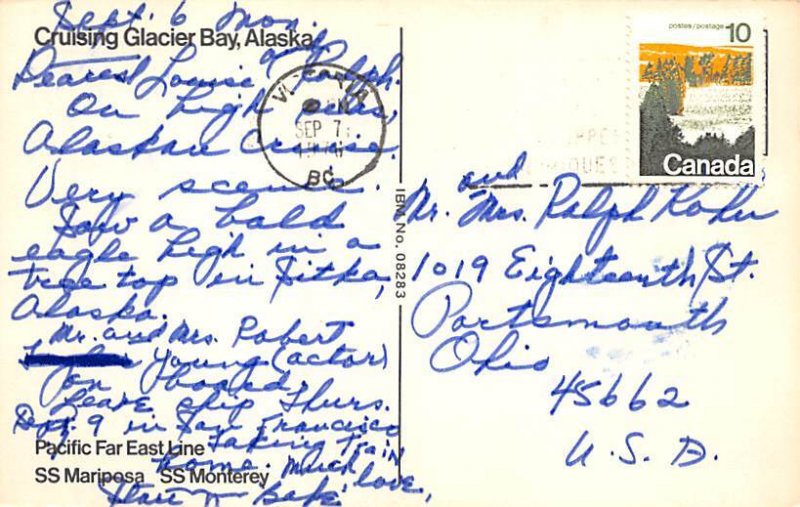 Sept. 6 Mon.
Cruising Glacier Bay, Alaska
Dearest Louise and Ralph.
On high seas,
Alaskan Cruise.
Very scenic.
Saw a bald
eagle high in a
tree top in Sitka,
Alaska.
Mr. and Mrs. Robert
Young (actor)
on board.
Leave ship Thurs.
Sept. 9 in San Francisco
Taking Train
Pacific Far East Line
home. Much love,
SS Mariposa SS Monterey
IBM No. 08283
SEP 7
BC
postes/postage 10
Canada
Mr. and Mrs. Ralph
1019 Eighteenth St.
Portsmouth
Ohio
45662
U.S.A.